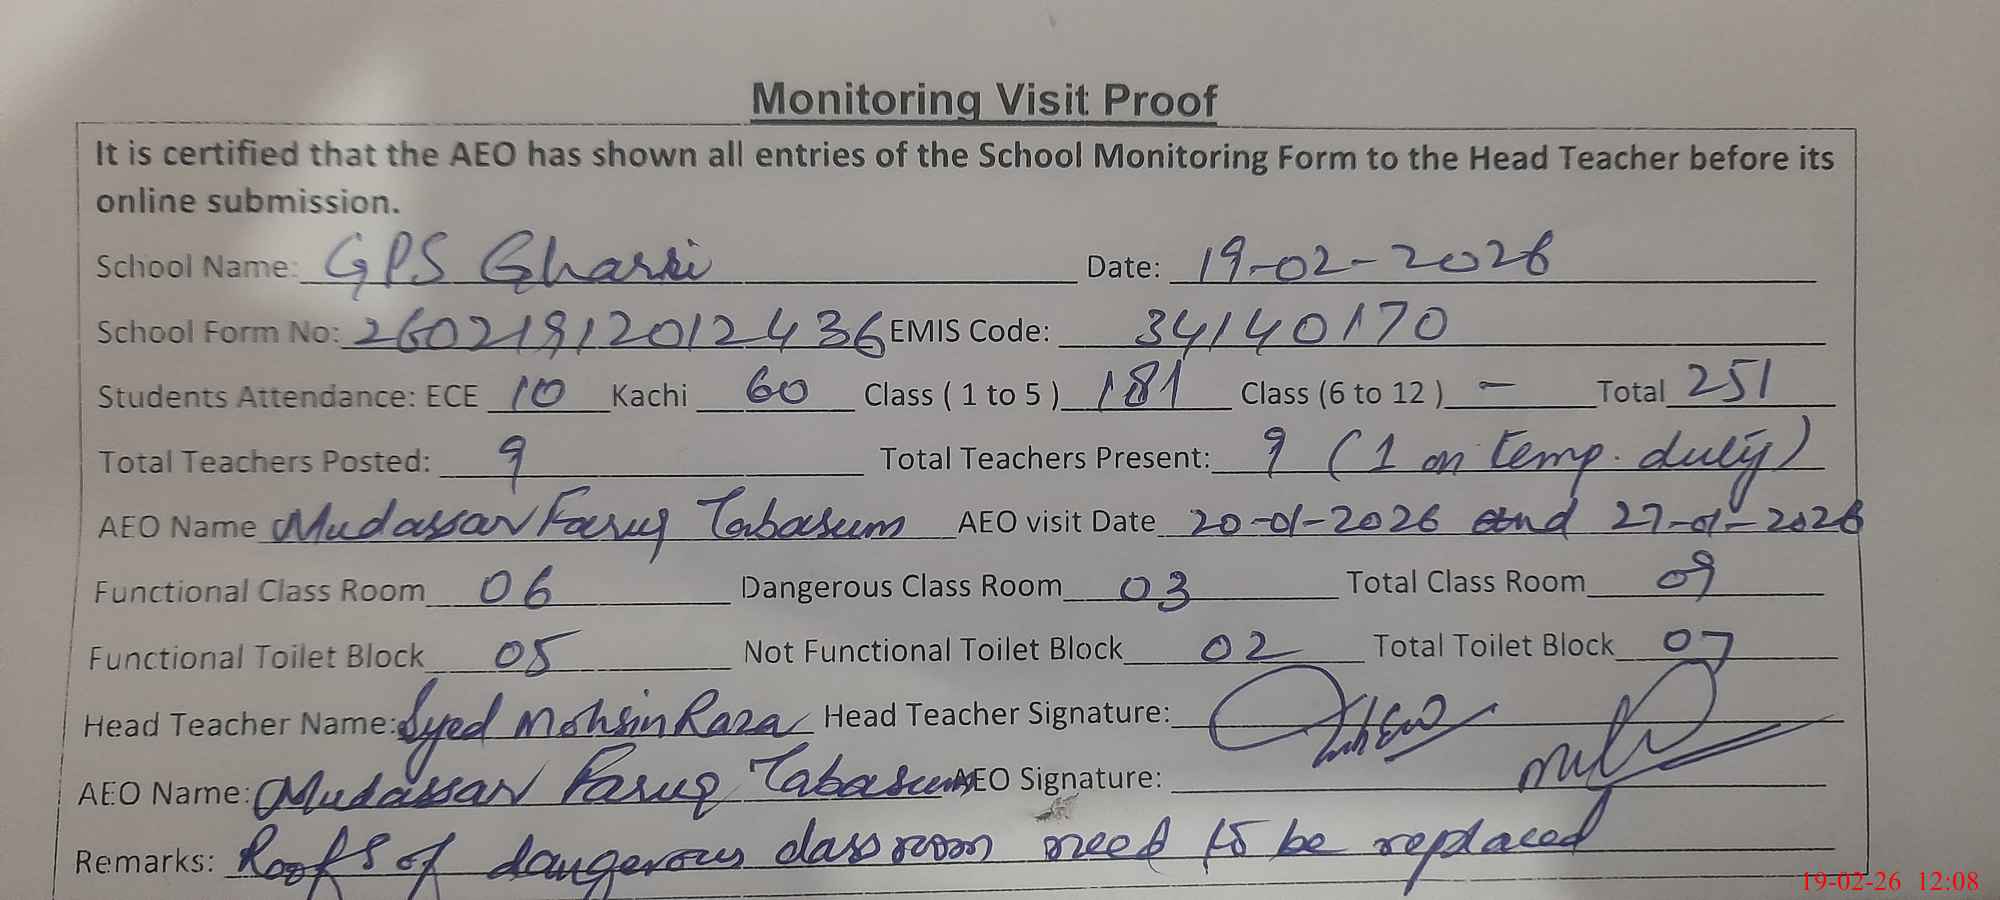 Monitoring Visit Proof
It is certified that the AEO has shown all entries of the School Monitoring Form to the Head Teacher before its
online submission.
School Name: GPS Gharki Date: 19-02-2026
School Form No: 26021912012436 EMIS Code: 34140170
Students Attendance: ECE 10 Kachi 60 Class ( 1 to 5 ) 181 Class (6 to 12 ) — Total 251
Total Teachers Posted: 9 Total Teachers Present: 9 (1 on temp. duty)
AEO Name Mudassar Faruq Tabasum AEO visit Date 20-01-2026 and 27-01-2026
Functional Class Room 06 Dangerous Class Room 03 Total Class Room 09
Functional Toilet Block 05 Not Functional Toilet Block 02 Total Toilet Block 07
Head Teacher Name: Syed Mohsin Raza Head Teacher Signature:
AEO Name: Mudassar Faruq Tabasum AEO Signature:
Remarks: Roofs of dangerous classroom need to be replaced
19-02-26 12:08